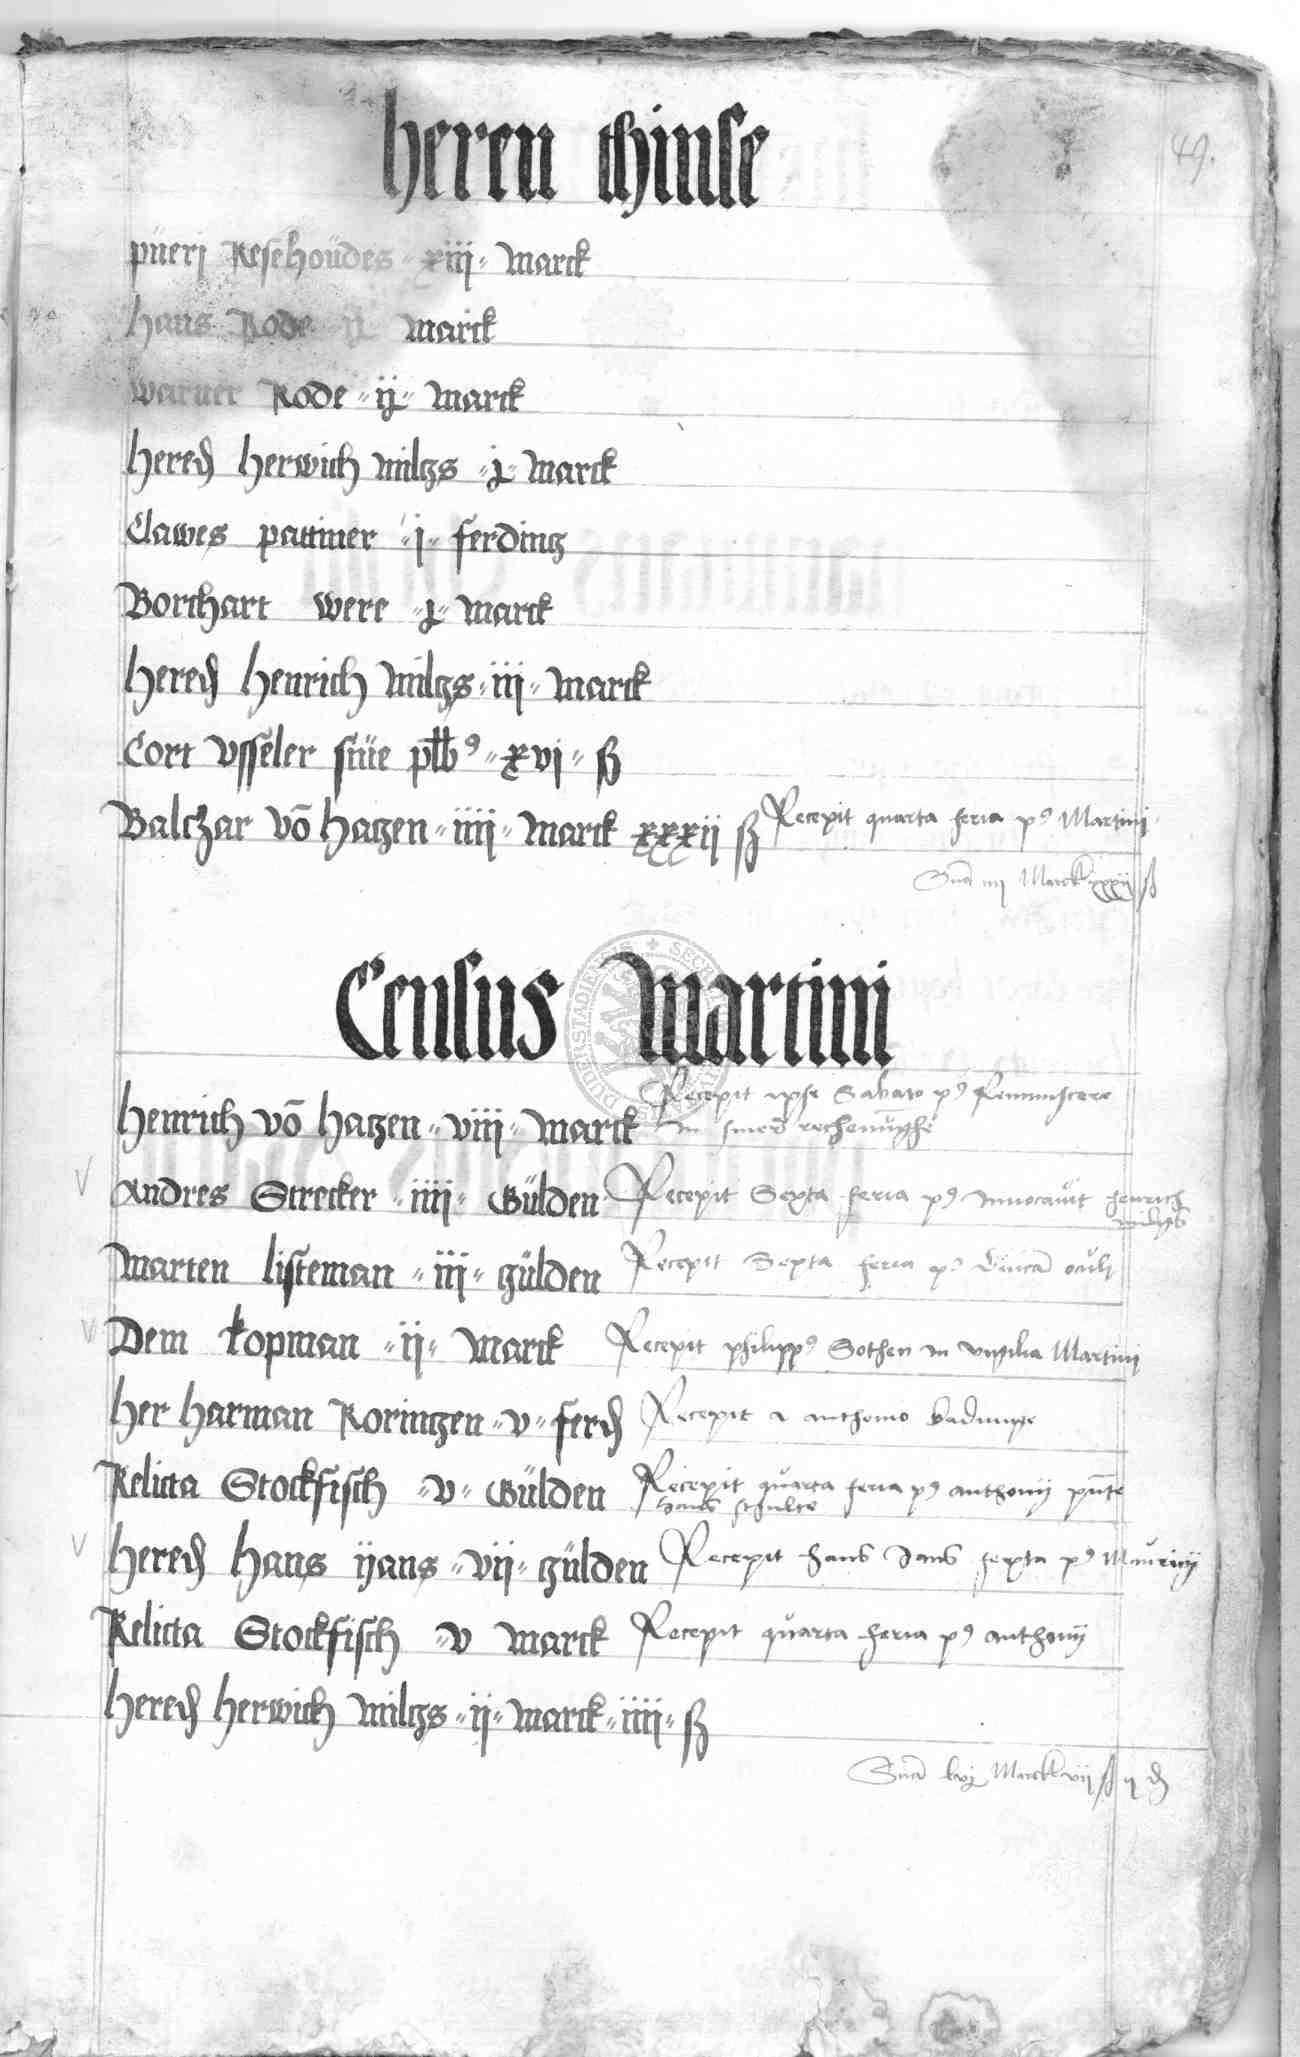 heren thinse
49.
pueri Resehoudes xiij marck
hans Rode ij marck
warner Rode ij marck
hered herwich wilgs j marck
Clawes pattiner j ferding
Borchart were j marck
hered henrich wilgs iij marck
Cort Usseler siue plb9 xvj ß
Balczar võ hagen iiij marck xxxij ß Recepit quarta feria p9 Martini
Suma iiij Marck xxxij ß
Census Martini
henrich võ hagen viij marck Recepit ipse Sabato p9 Reminiscere
in siner rechenunghe
Andres Strecker iiij Gülden Recepit Sexta feria p9 Invocavit henrich
wilgs
Marten listeman iij gülden Recepit Sexta feria p9 oculi
Dem kopman ij Marck Recepit philipp9 Sothen in vigilia Martini
her harman Roringen v ferd Recepit a anthonio
Relicta Stockfisch v Gülden Recepit quarta feria p9 anthonij pñte
hans schulte
hered hans ijans vij gülden Recepit hans Jans sexta p9 Mauricij
Relicta Stockfisch v marck Recepit quarta feria p9 anthonij
hered herwich wilgs ij marck iiij ß
Suma Marck vij ß ij d